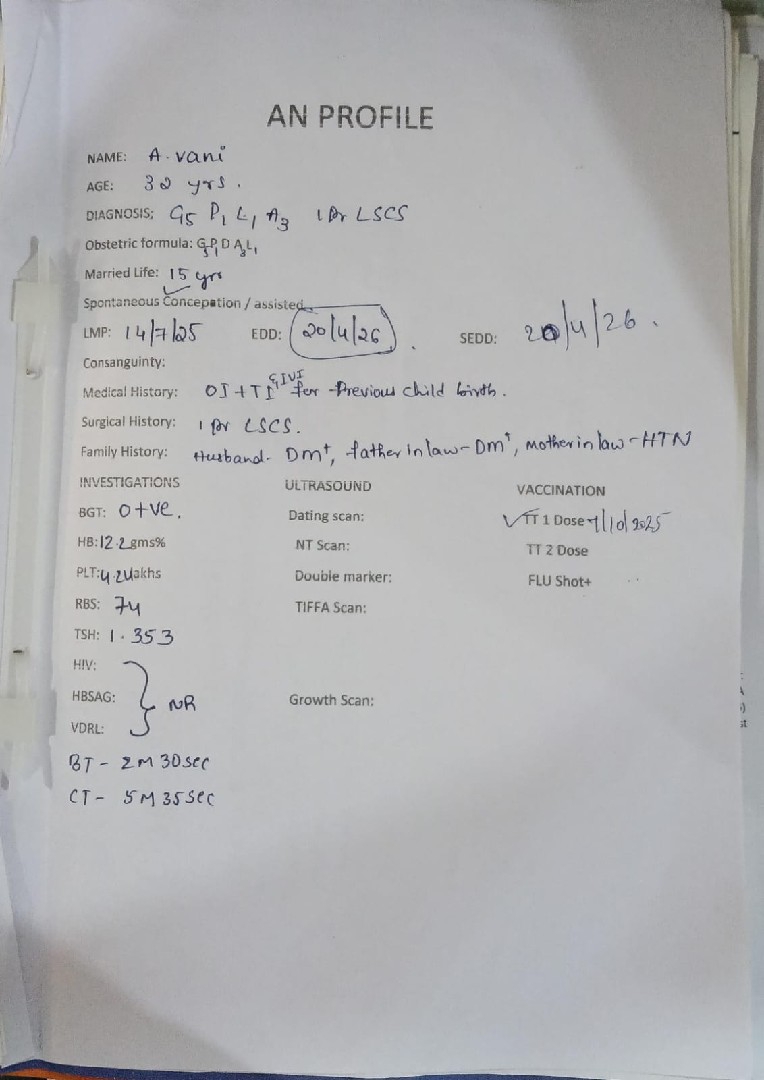 AN PROFILE
NAME: A. vani
AGE: 32 yrs.
DIAGNOSIS; G5 P1 L1 A3 1 Pr LSCS
Obstetric formula: G5P1D A3L1
Married Life: 15 yrs
Spontaneous Concepation / assisted
LMP: 14/7/25 EDD: 20/4/26. SEDD: 20/4/26.
Consanguinty:
Medical History: OI + TI GIVI for Previous child birth.
Surgical History: 1 Pr LSCS.
Family History: Husband- Dm+, father in law - Dm+, mother in law - HTN
INVESTIGATIONS ULTRASOUND VACCINATION
BGT: O+ve. Dating scan: TT 1 Dose 7/10/2025
HB: 12.2 gms% NT Scan: TT 2 Dose
PLT: 4.2 lakhs Double marker: FLU Shot+
RBS: 74 TIFFA Scan:
TSH: 1.353
HIV:
HBSAG: NR Growth Scan:
VDRL:
BT - 2M 30sec
CT - 5M 35sec